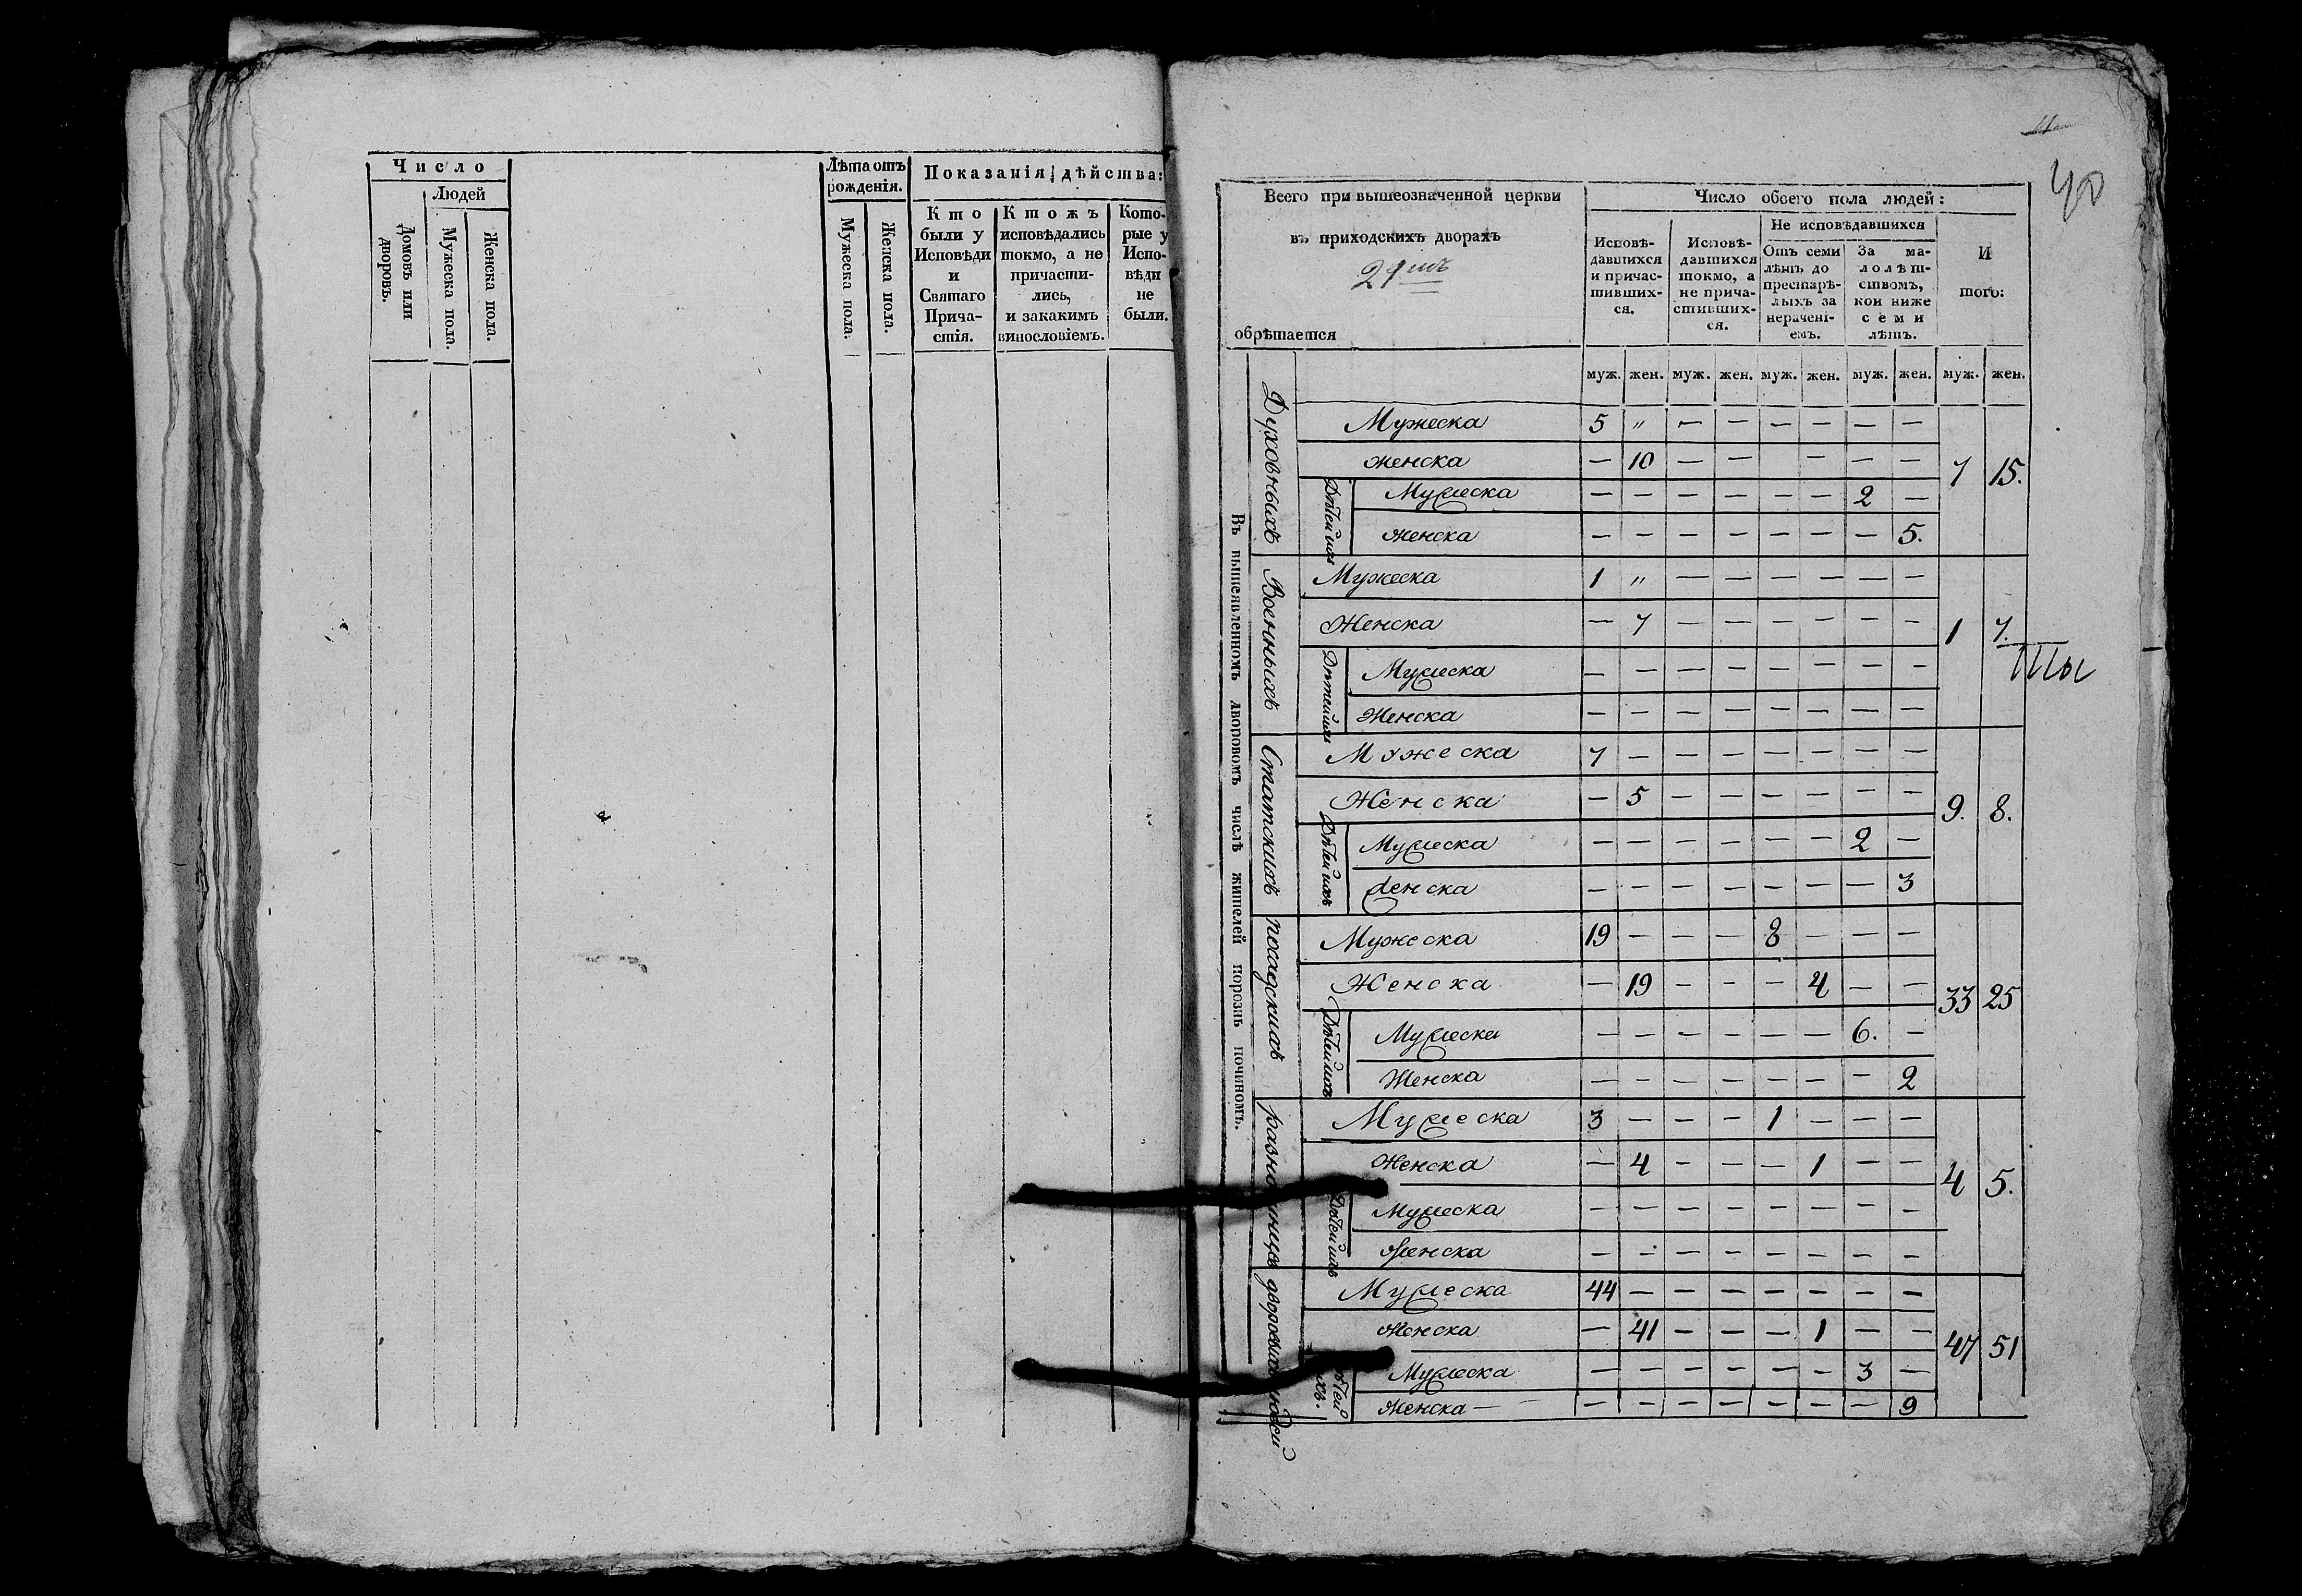 Число
Людей
Домовъ или дворовъ.
Мужеска пола.
Женска пола.
Лѣта отъ рожденія.
Мужеска пола.
Женска пола.
Показанія дѣйства:
Кто были у Исповѣди и Святаго Прича-стія.
Ктожъ исповѣдались токмо, а не причасти-лись, и закакимъ винословіемъ.
Кото-рые у Испо-вѣди не были.
40
Всего при вышеозначенной церкви
въ приходскихъ дворахъ
обрѣтается
Число обоего пола людей:
Исповѣ-давшихся и причас-тивших-ся.
Исповѣ-давшихся токмо, а не прича-стивших-ся.
Не исповѣдавшихся
Отъ семи лѣтъ до престарѣ-лыхъ за нерачені-емъ.
За ма-лолѣт-ствомъ, кои ниже семи лѣтъ.
И того:
муж. жен. муж. жен. муж. жен. муж. жен. муж. жен.
Въ вышеявленномъ дворовомъ числѣ жителей порознь починомъ.
Духовныхъ
Мужеска 5 „ — — — — — —
Женска — 10 — — — — —
7 15.
Дѣтей ихъ
Мужеска — — — — — — 2 —
Женска — — — — — — — 5.
Военныхъ
Мужеска 1 „ — — — — — —
Женска — 7 — — — — — —
1 7.
Дѣтей ихъ
Мужеска — — — — — — — —
Женска — — — — — — — —
Статскихъ
Мужеска 7 — — — — — — —
Женска — 5 — — — — — —
9. 8.
Дѣтей ихъ
Мужеска — — — — — — 2 —
Женска — — — — — — — 3
посадскихъ
Мужеска 19 — — — 8 — — —
Женска — 19 — — — 4 — —
33 25
Дѣтей ихъ
Мужеска — — — — — — 6. —
Женска — — — — — — — 2
Мужеска 3 — — — 1 — — —
Женска — 4 — — — 1 — —
4 5.
Дѣтей ихъ
Мужеска — — — — — — — —
Женска — — — — — — — —
Мужеска 44 — — — — — — —
Женска — 41 — — — 1 — —
47 51
Мужеска — — — — — — 3 —
Женска — — — — — — — 9